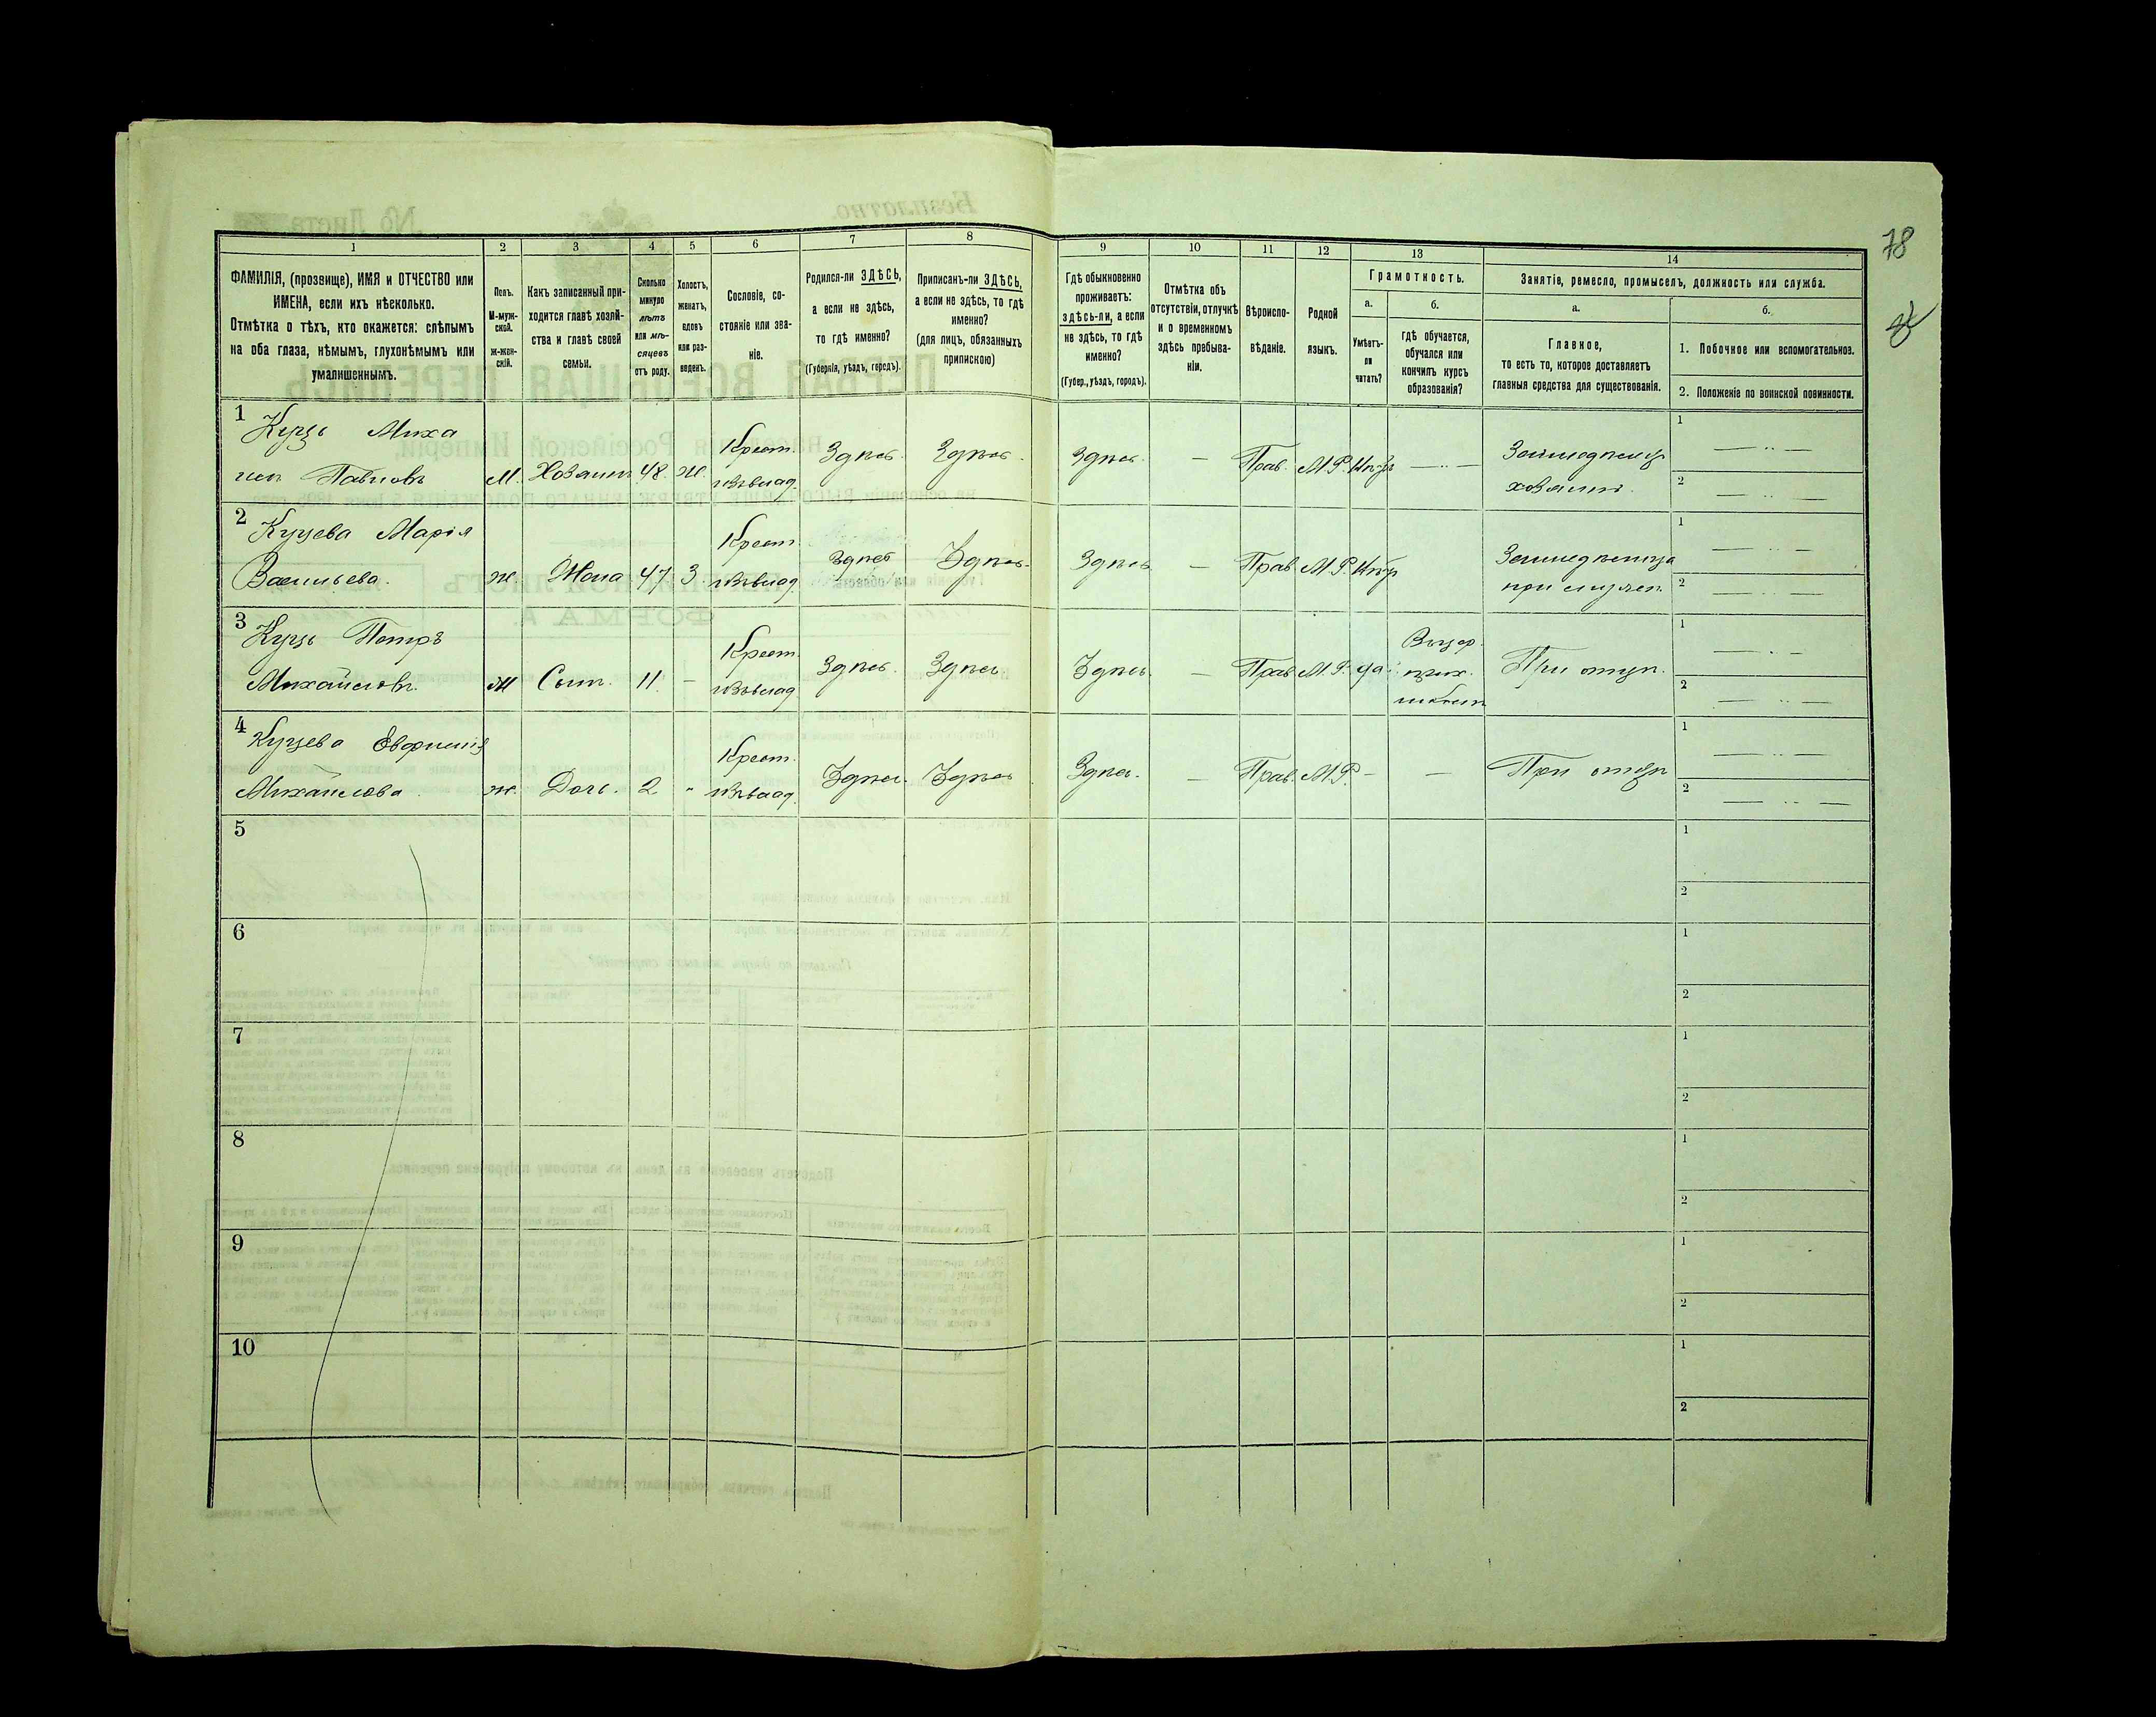 78
1 2 3 4 5 6 7 8 9 10 11 12 13 14
ФАМИЛІЯ, (прозвище), ИМЯ и ОТЧЕСТВО или
ИМЕНА, если ихъ нѣсколько.
Отмѣтка о тѣхъ, кто окажется: слѣпымъ
на оба глаза, нѣмымъ, глухонѣмымъ или
умалишеннымъ.
Полъ.
М-муж-
ской.
Ж-жен-
скій.
Какъ записанный при-
ходится главѣ хозяй-
ства и главѣ своей
семьи.
Сколько
минуло
лѣтъ
или мѣ-
сяцевъ
отъ роду.
Холостъ,
женатъ,
вдовъ
или раз-
веденъ.
Сословіе, со-
стояніе или зва-
ніе.
Родился-ли ЗДѢСЬ,
а если не здѣсь,
то гдѣ именно?
(Губернія, уѣздъ, городъ).
Приписанъ-ли ЗДѢСЬ,
а если не здѣсь, то гдѣ
именно?
(для лицъ, обязанныхъ
припискою)
Гдѣ обыкновенно
проживаетъ:
здѣсь-ли, а если
не здѣсь, то гдѣ
именно?
(Губер., уѣздъ, городъ).
Отмѣтка объ
отсутствіи, отлучкѣ
и о временномъ
здѣсь пребыва-
ніи.
Вѣроиспо-
вѣданіе.
Родной
языкъ.
Грамотность.
а.
Умѣетъ-
ли
читать?
б.
гдѣ обучается,
обучался или
кончилъ курсъ
образованія?
Занятіе, ремесло, промыселъ, должность или служба.
а.
Главное,
то есть то, которое доставляетъ
главныя средства для существованія.
б.
1. Побочное или вспомогательное.
2. Положеніе по воинской повинности.
1 Куць Миха
илъ Павловъ М. Хозяинъ 48. Ж. Крест. Здѣсь. Здѣсь. Здѣсь. — Прав. М.Р. Нѣтъ — .. —
хозяинъ.
1 — .. —
2 — .. —
2 Куцева Марія
Васильева. ж. Жена 47. З. Крест. Здѣсь Здѣсь. Здѣсь — Прав М.Р. Нѣтъ
1 — .. —
2 — .. —
3 Куць Петръ
Михайловъ. М Сынъ. 11. — Крест. Здѣсь. Здѣсь Здѣсь. — Прав М.Р. да При отцѣ.
1 — .. —
2 — .. —
4 Куцева
Михайлова. ж. Дочь. 2 - Крест. Здѣсь. Здѣсь Здѣсь. — Прав. М.Р. - — При отцѣ
1 — .. —
2 — .. —
5 1
2
6 1
2
7 1
2
8 1
2
9 1
2
10 1
2